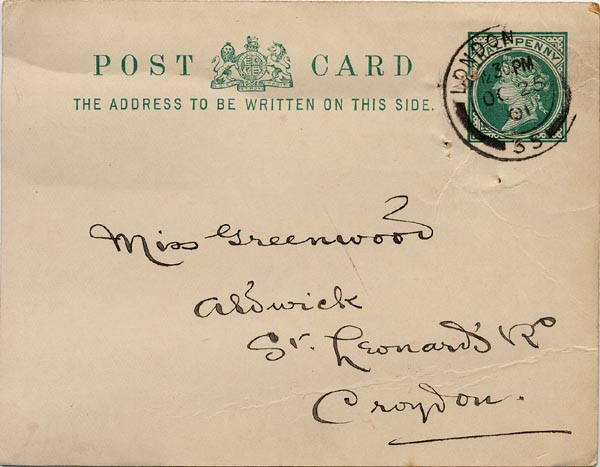 POST CARD
THE ADDRESS TO BE WRITTEN ON THIS SIDE.
PENNY
LONDON
.30PM
OC 26
01
35
Miss Greenwood
Aldwick
St. Leonard's Rd
Croydon.